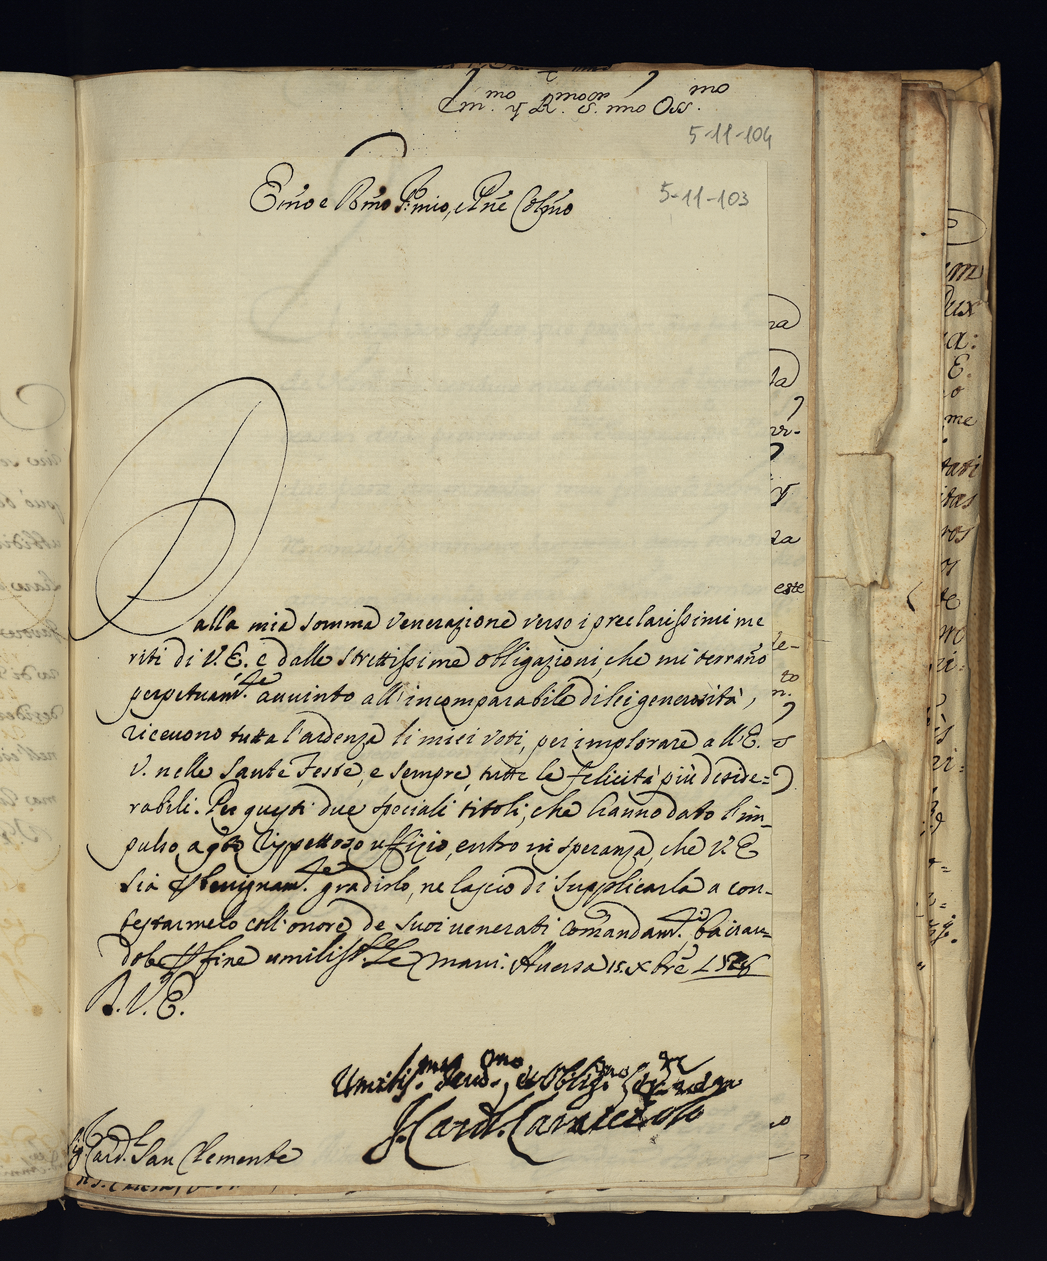 Em.mo y R.mo S.or mio Oss.mo
5-11-104
Em̃o e Rm̃o Sr. mio, e Pne Colm̃o
5-11-103
Dalla mia somma venerazione verso i preclarissimi me
riti di V. E. e dalle strettissime obligazioni, che mi terrano
perpetuam.te auuinto all'incomparabile di lei generosità,
riceuono tutta l'ardenza li miei voti, per implorare all'E.
V. nelle Sante Feste, e sempre, tutte le felicità più deside=
rabili. Per questi due speciali titoli, che hanno dato l'im-
pulso a qto rispettoso uffizio, entro in speranza, che V. E
sia p benignam.te gradirlo, ne lascio di supplicarla a con-
testarmelo coll'onore de suoi venerati comandam.ti, bacian=
dole p fine umiliss.te le mani. Auersa 15. Xbre
D. V. E.
Umiliss.mo Deuo.mo et Obblig.mo Ser.re
J. Card. Caracciolo
Sig. Card. San Clemente